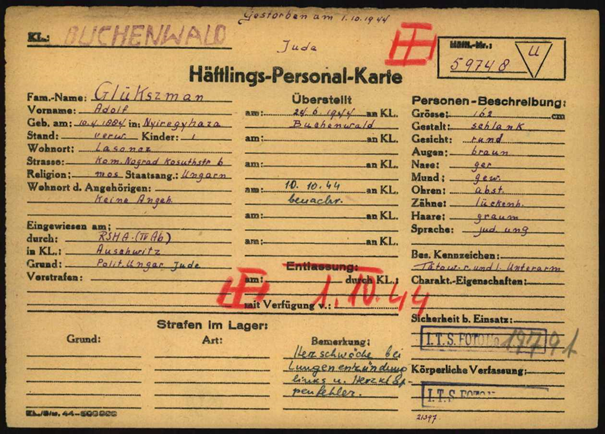 Gestorben am 1.10.1944
KL: BUCHENWALD
Jude
Häftl.-Nr.:
59748
U
Häftlings-Personal-Karte
Fam.-Name: Glükszman
Vorname: Adolf
Geb. am: 10.4.1884 in: Nyiregyhaza
Stand: verw. Kinder: 1
Wohnort: Lasonez
Strasse: Kom. Nograd Kosuthstr 6
Religion: mos Staatsang.: Ungarn
Wohnort d. Angehörigen:
Keine Angeh.
Eingewiesen am:
durch: RSHA
in KL.: Auschwitz
Grund: Polit. Ungar. Jude
Vorstrafen:
Überstellt
am: 24.6.1944 an KL.
Buchenwald
am: an KL.
am: an KL.
am: 10.10.44 an KL.
benachr.
am: an KL.
am: an KL.
Entlassung:
am: durch KL.:
mit Verfügung v.:
1. IV. 44
Personen-Beschreibung:
Grösse: 162 cm
Gestalt: schlank
Gesicht: rund
Augen: braun
Nase: ger.
Mund: gew.
Ohren: abst.
Zähne: lückenh.
Haare: graum
Sprache: jud. ung
Bes. Kennzeichen:
Tätow. r. und l. Unterarm
Charakt.-Eigenschaften:
Sicherheit b. Einsatz:
I.T.S. FOTO
Körperliche Verfassung:
I.T.S FOTO
21397
Strafen im Lager:
Grund: Art: Bemerkung:
Herzschwäche bei
Lungenentzündung
links u. Herzkl
penfehler.